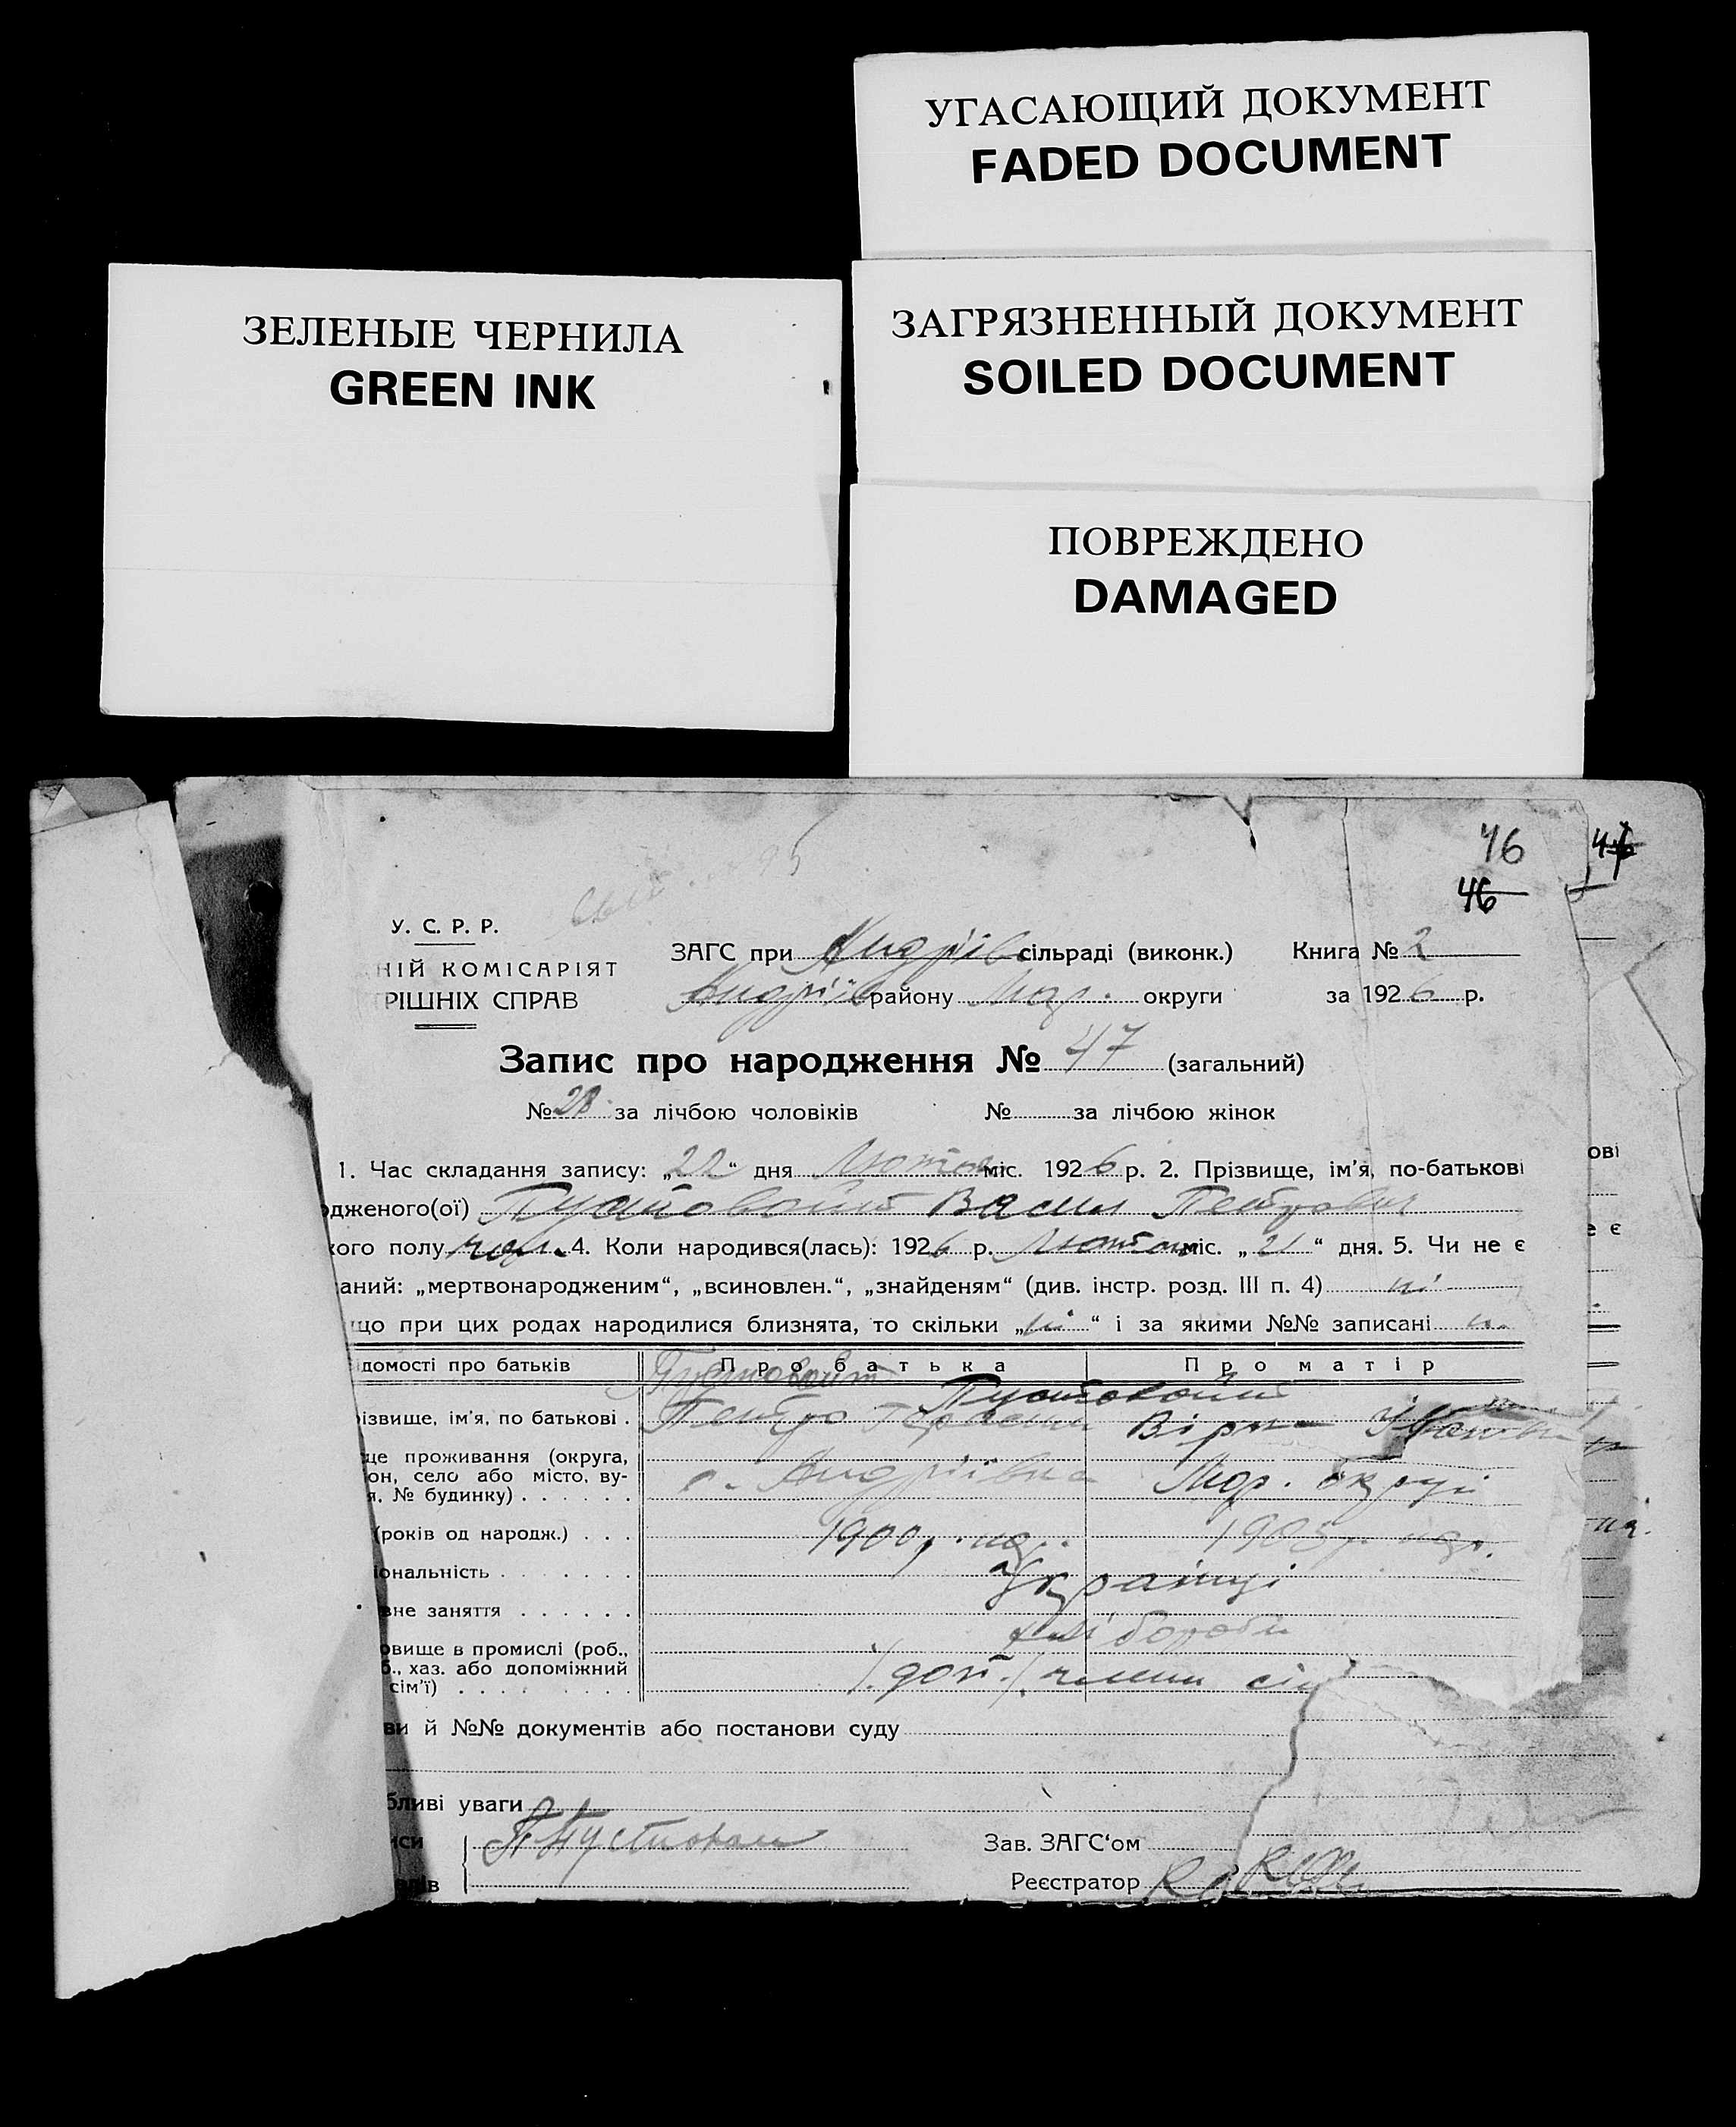 УГАСАЮЩИЙ ДОКУМЕНТ
FADED DOCUMENT
ЗАГРЯЗНЕННЫЙ ДОКУМЕНТ
SOILED DOCUMENT
ЗЕЛЕНЫЕ ЧЕРНИЛА
GREEN INK
ПОВРЕЖДЕНО
DAMAGED
46
46
У. С. Р. Р.
НІЙ КОМІСАРІЯТ
РІШНІХ СПРАВ
ЗАГС при Андріїв сільраді (виконк.) Книга № 2
Андріїв району Мар. округи за 1926 р.
Запис про народження № 47 (загальний)
№ 28 за лічбою чоловіків № за лічбою жінок
1. Час складання запису: „22“ дня Лютого міс. 1926 р. 2. Прізвище, ім'я, по-батькові
дженого(ої) Пустовойт Васил Петрович
кого полу чол. 4. Коли народився(лась): 1926 р. Лютого міс. „21“ дня. 5. Чи не є
аний: „мертвонародженим“, „всиновлен.“, „знайденям“ (див. інстр. розд. III п. 4) ні
що при цих родах народилися близнята, то скільки „ні“ і за якими №№ записані н.
ідомості про батьків Про батька Про матір
Пустовойт
Пустовойт
ізвище, ім'я, по батькові . Петро Віра
це проживання (округа,
он, село або місто, ву-
я, № будинку) . . . . . . с. Андріївка Мар. округи
(років од народж.) . . . 1900 р. на. 1905 р. на.
іональність . . . . . . . Українці
вне заняття . . . . . . хлібороби
овище в промислі (роб.,
б., хаз. або допоміжний
сім'ї) . . . . . . . . . /. доп. /. члени сім
ви й №№ документів або постанови суду
бливі уваги
иси П Пустовой Зав. ЗАГС'ом
ів Реєстратор